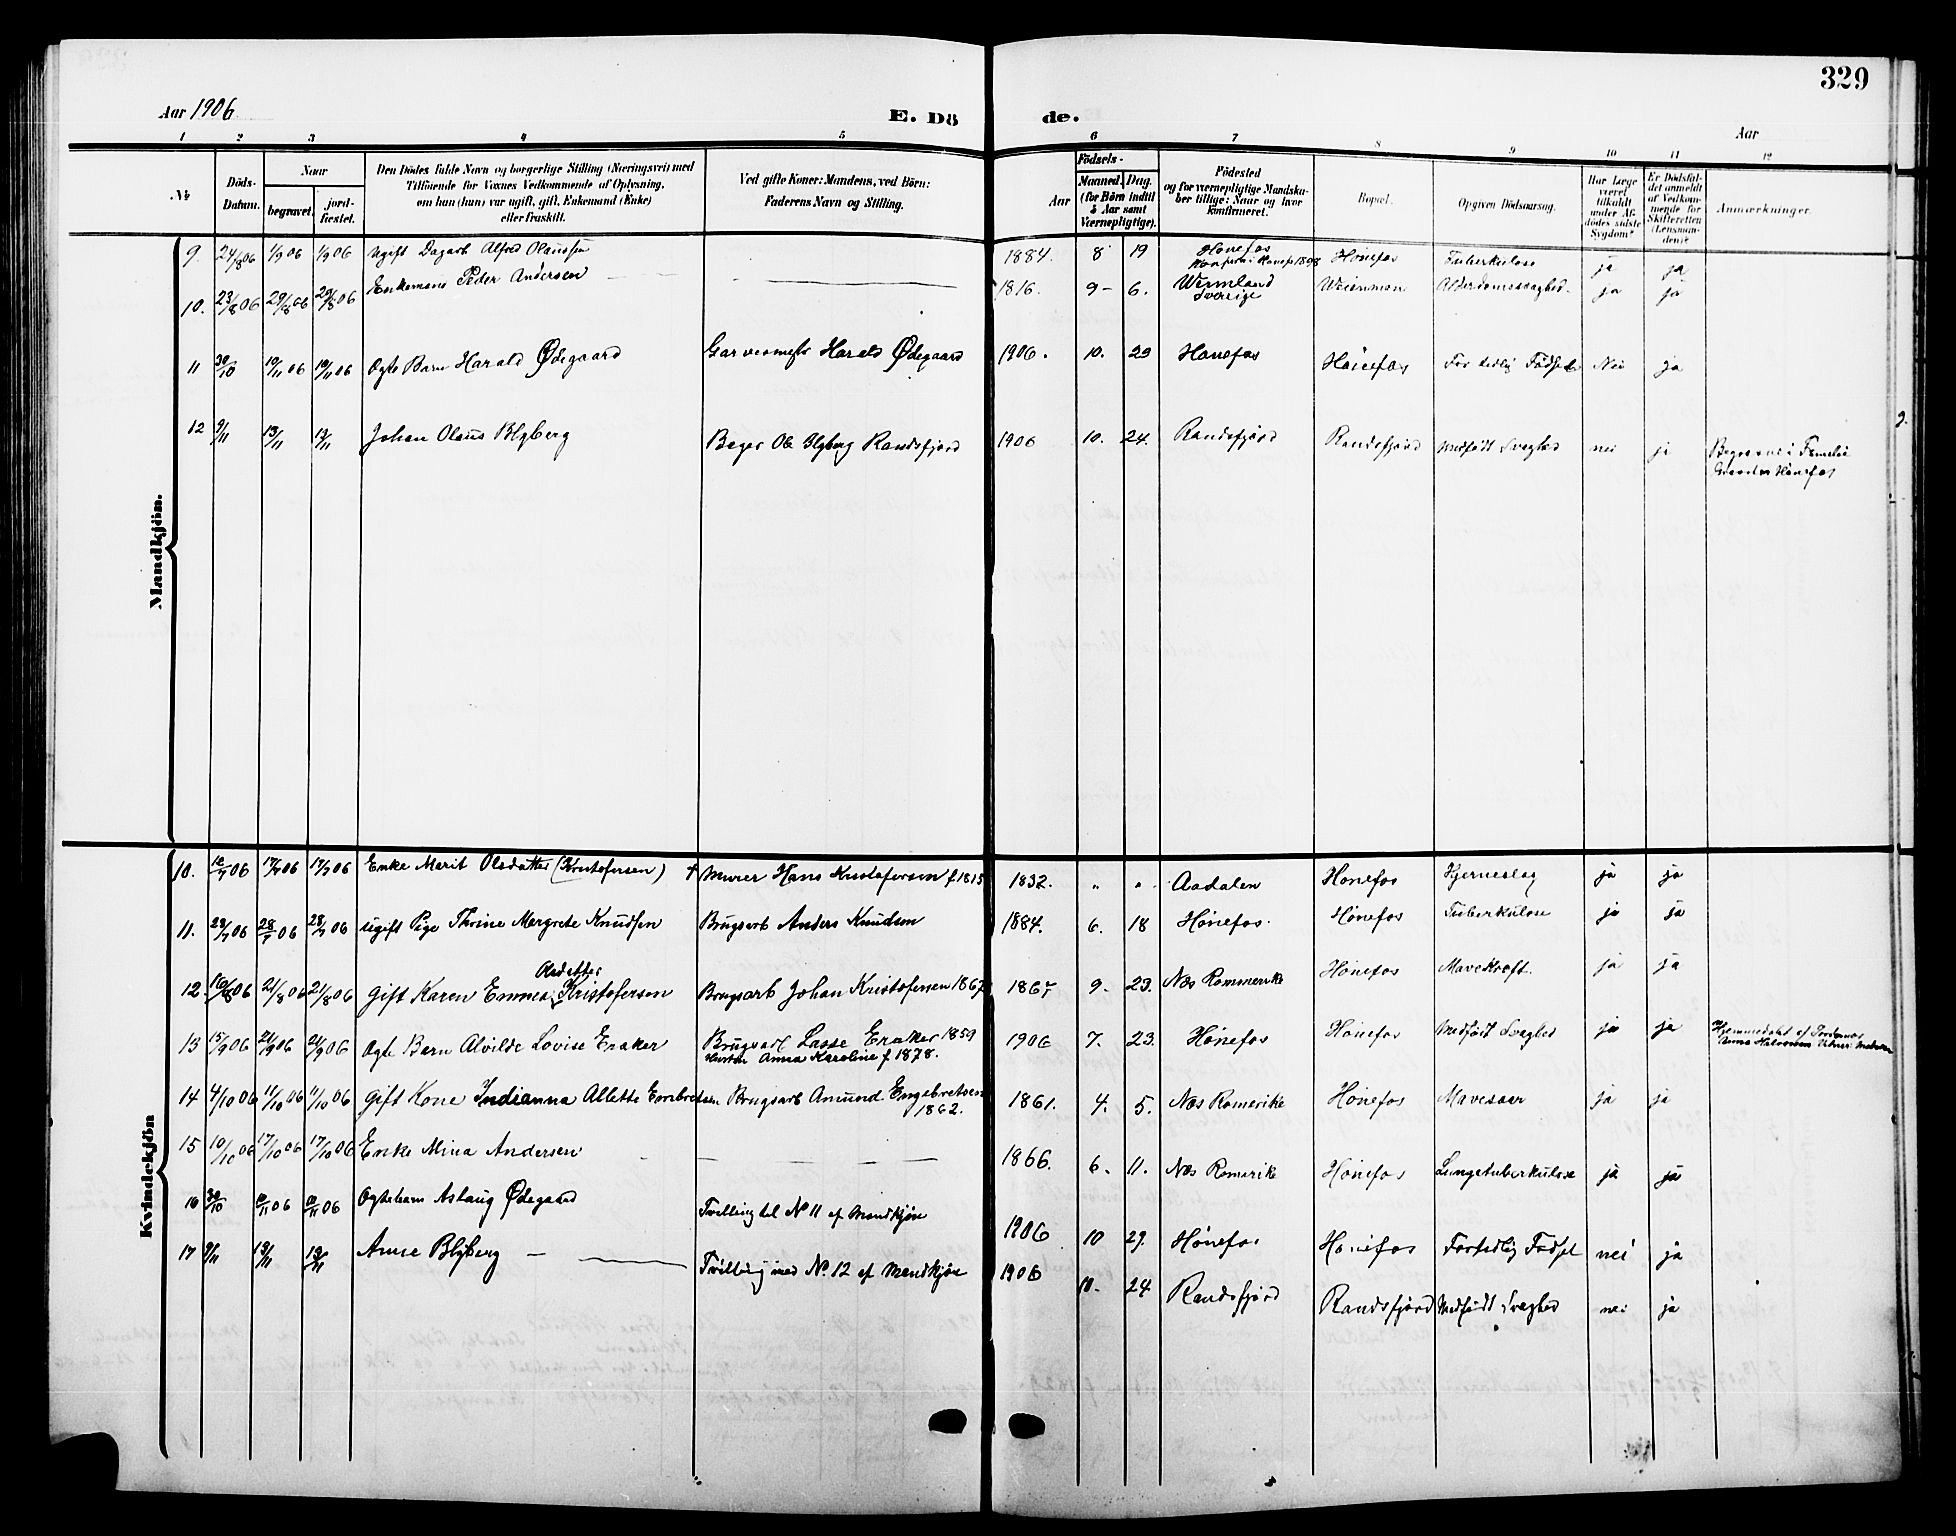 329
Aar 1906
E. Dö
de.
Aar
1 2 3 4 5 6 7 8 9 10 11 12
№
Döds-Datum.
Naar
begravet.
jord-fæstet.
Den Dödes fulde Navn og borgerlige Stilling (Næringsvei) med
Tilföiende for Voxnes Vedkommende af Oplysning,
om han (hun) var ugift, gift, Enkemand (Enke)
eller fraskilt.
Ved gifte Koner: Mandens, ved Börn:
Faderens Navn og Stilling.
Födsels-
Aar
Maaned.
Dag.
(for Börn indtil
5 Aar samt
Værnepligtige).
Födested
og for værnepligtige Mandska-
ber tillige: Naar og hvor
konfirmeret.
Bopæl.
Opgiven Dödsaarsag.
Har Læge
været
tilkaldt
under Af-
dödes sidste
Sygdom?
Er Dödsfal-
det anmeldt
af Vedkom-
mende for
Skifteretten
(Lensman-
den)?
Anmærkninger.
Mandkjön.
9. 24/8 06 1/9 06 1/9 06 Ugift Dagarb Alfred Olaussen 1884. 8 19 Hønefos Hønefos Tuberkulose ja ja
10. 23/8 06 29/8 06 29/8 06 Enkemand Peder Andersen 1816. 9 6. Wermland Sverige Weienmoen Alderdomssvaghed. ja ja
11 30/10 10/11 06 10/11 06 Ægte Barn Harald Ødegaard Garvermester Harald Ødegaard 1906. 10. 29 Hønefos Hønefos For tidlig Fødsel Nei ja
12 9/11 13/11 13/11 Johan Olaus Blyberg Bager Ole Blyberg Randsfjord 1906 10. 24. Randsfjord Randsfjord Medfødt Svaghed nei ja Begravet i Familie
Hønefos
Kvindekjön
10. 10/7 06 17/7 06 17/7 06 Enke Marit Olsdatter (Kristofersen) + Murer Hans Kristofersen f 1815 1832. " " Aadalen Hønefos Hjerneslag ja ja
11. 23/7 06 28/7 06 28/7 06 ugift Pige Thrine Margrete Knudsen Brugsarb Anders Knudsen 1884. 6. 18 Hønefos. Hønefos Tuberkulose ja ja
12 16/8 06 21/8 06 21/8 06 Gift Karen Emma Olsdatter Kristofersen Brugsarb Johan Kristofersen 1867 1867 9. 23. Næs Rommerike Hønefos Mavekræft. ja ja
13 15/9 06 21/9 06 21/9 06 Ægte Barn Alvilde Lovise Eraker Brugsarb Lasse Eraker 1859
Hustru Anna Karoline f 1878. 1906 7. 23. Hønefos Hønefos Medfødt Svaghed ja ja Hjemmedøbt af Jordemor
14 4/10 06 11/10 06 11/10 06 Gift Kone Indianna Allette Embretsen Brugsarb Amund Engebretsen
1862. 1861. 4. 5. Næs Romerike Hønefos Mavesaar ja ja
15 10/10 06 17/10 06 17/10 06 Enke Mina Andersen 1866. 6. 11. Næs Romerike Hønefos Lungetuberkulose ja ja
16 30/10 10/11 06 10/11 06 Ægtebarn Aslaug Ødegaard Tvilling til No 11 af Mandkjøn 1906 10 29. Hønefos Hønefos Fortidlig Fødsel nei ja
17 9/11 13/11 13/11 Anne Blyberg Tvilling med No. 12 af Mandkjøn 1906 10. 24 Randsfjord Randsfjord Medfødt Svaghed nei ja